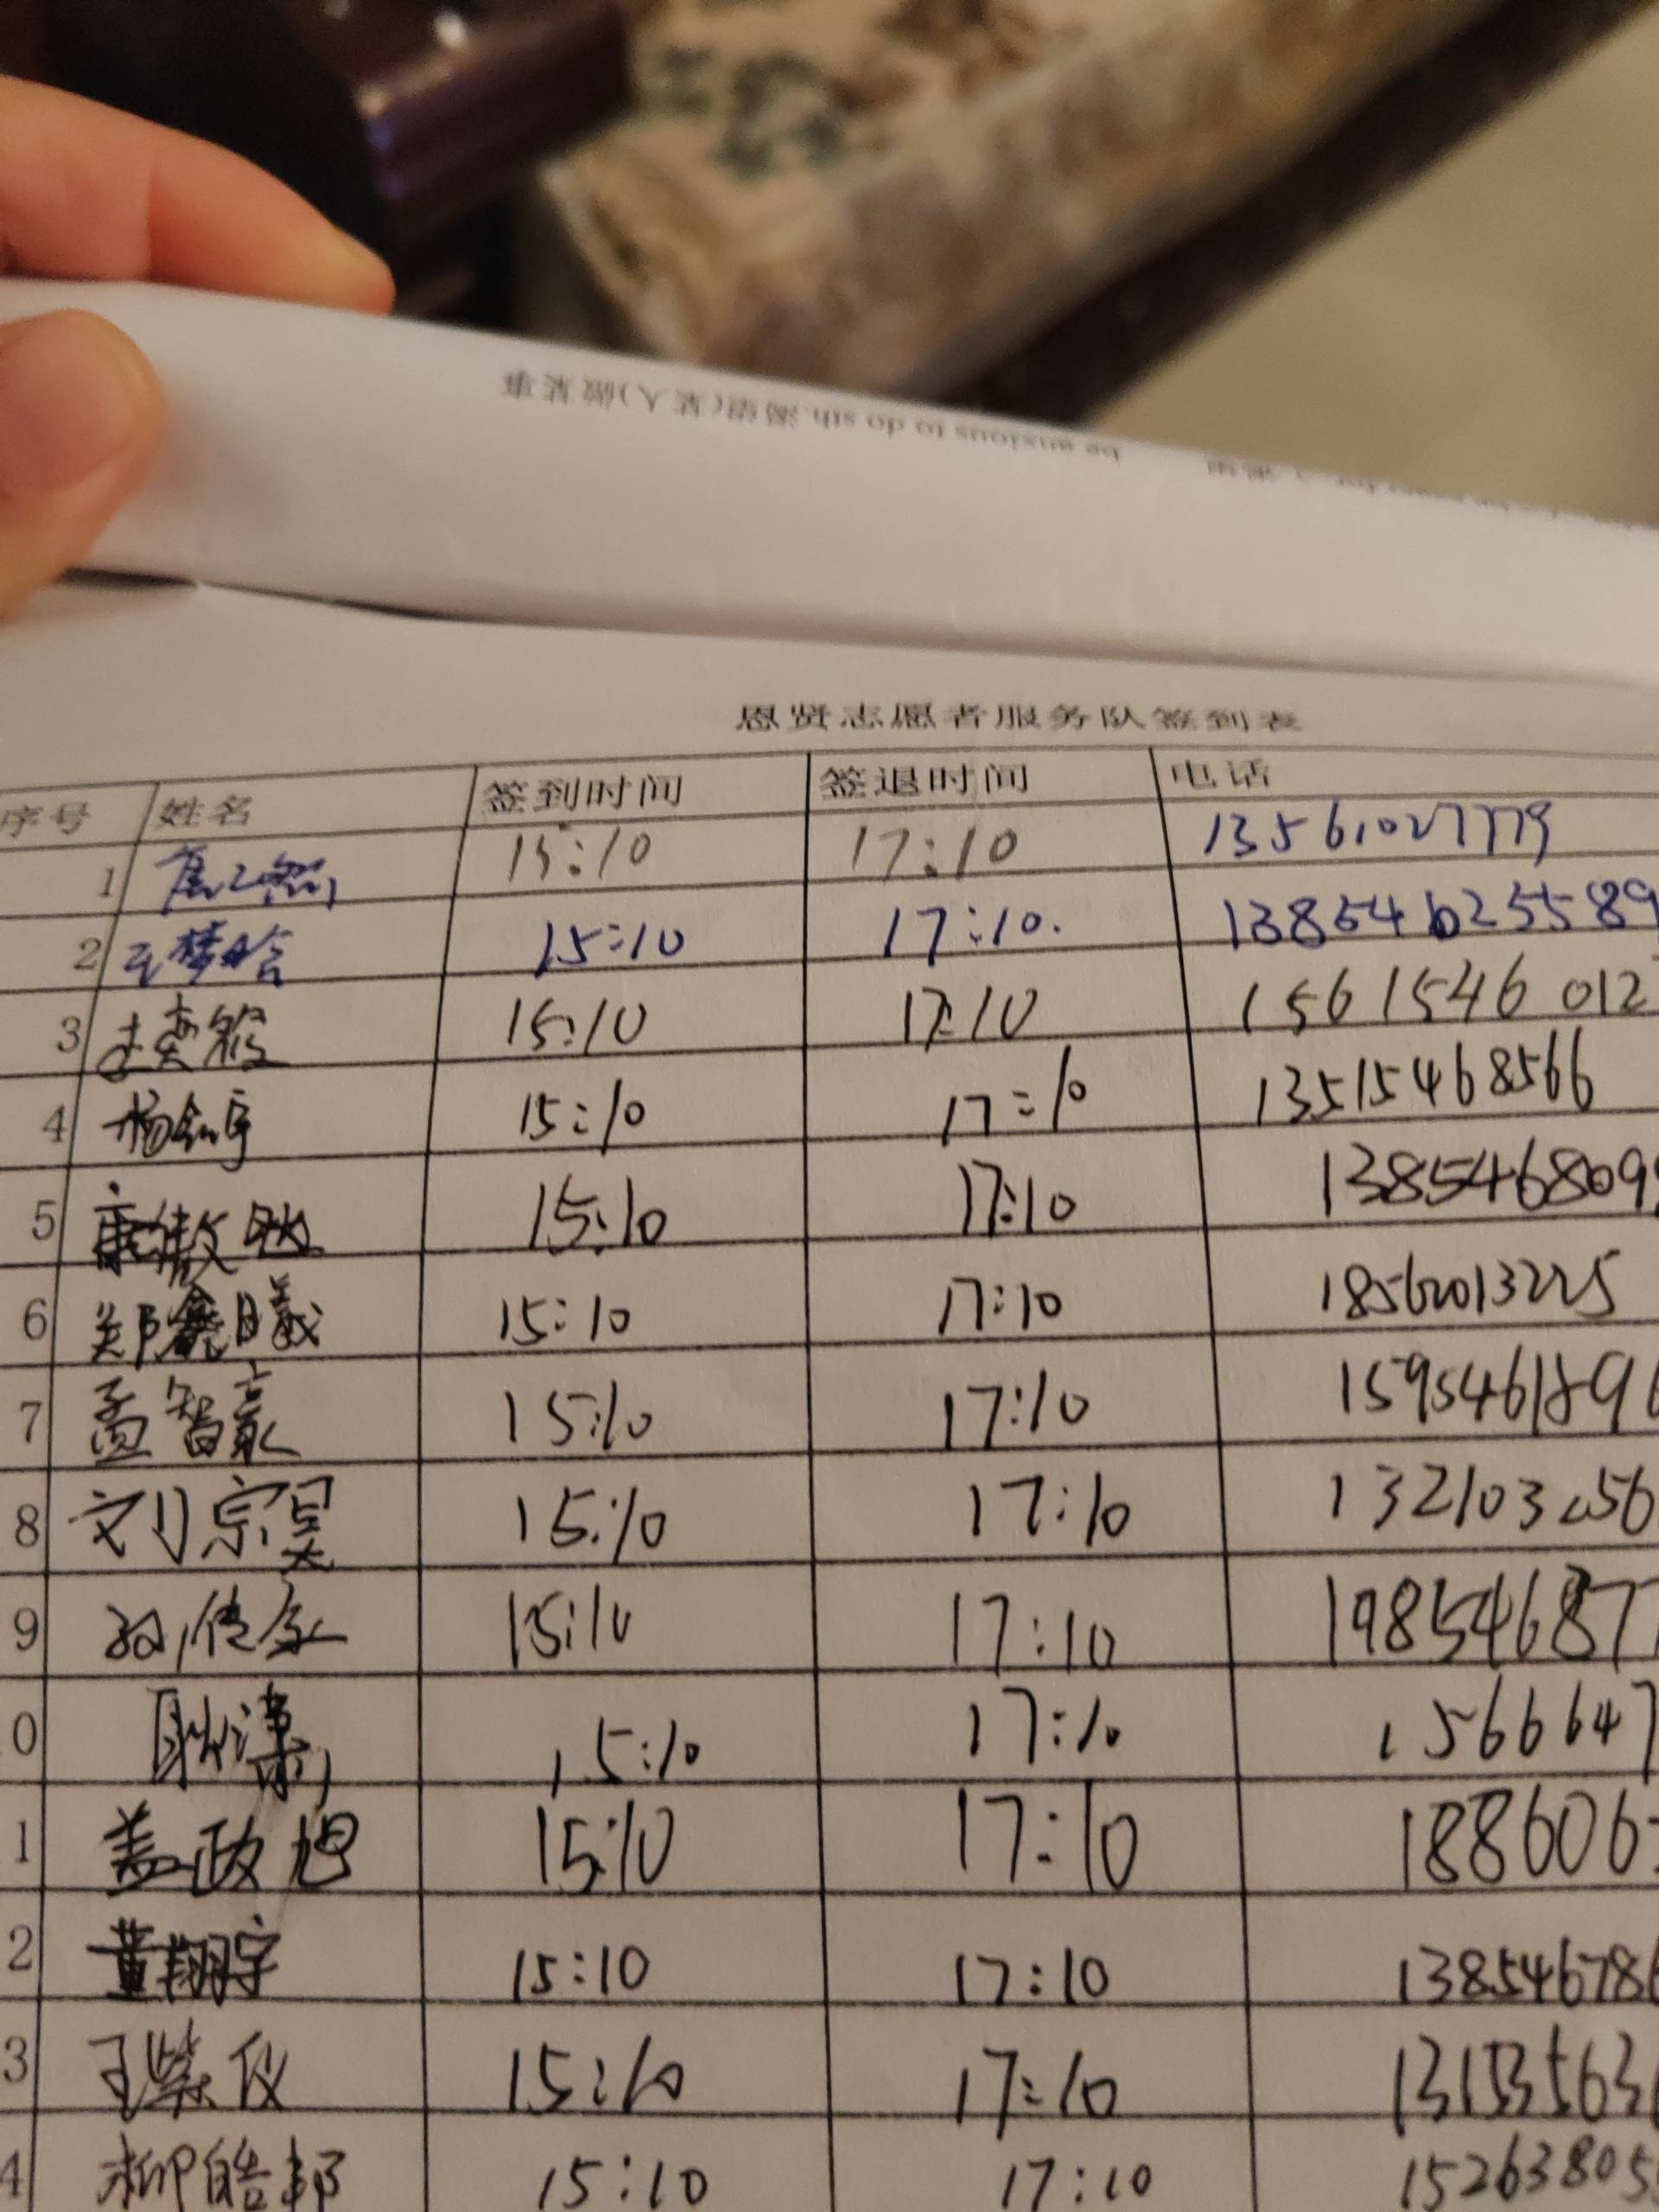 be anxious to do sth.渴望(某人)做某事
恩贤志愿者服务队签到表
序号 姓名 签到时间 签退时间 电话
1 15:10 17:10 13561027779
2 王梦晗 15:10 17:10. 138546255589
3 15:10 17:10 1561546 012
4 杨鑫宇 15:10 17:10 13515468566
5 康傲秋 15:10 17:10 1385468099
6 郑鑫曦 15:10 17:10 18562013225
7 孟智豪 15:10 17:10 159546189
8 刘宗昊 15:10 17:10 132103256
9 15:10 17:10 198546877
0 耿潇 15:10 17:10 1566647
1 盖政旭 15:10 17:10 188606
2 董翔宇 15:10 17:10 138546786
3 王紫仪 15:10 17:10 131535636
4 柳皓邦 15:10 17:10 152638055